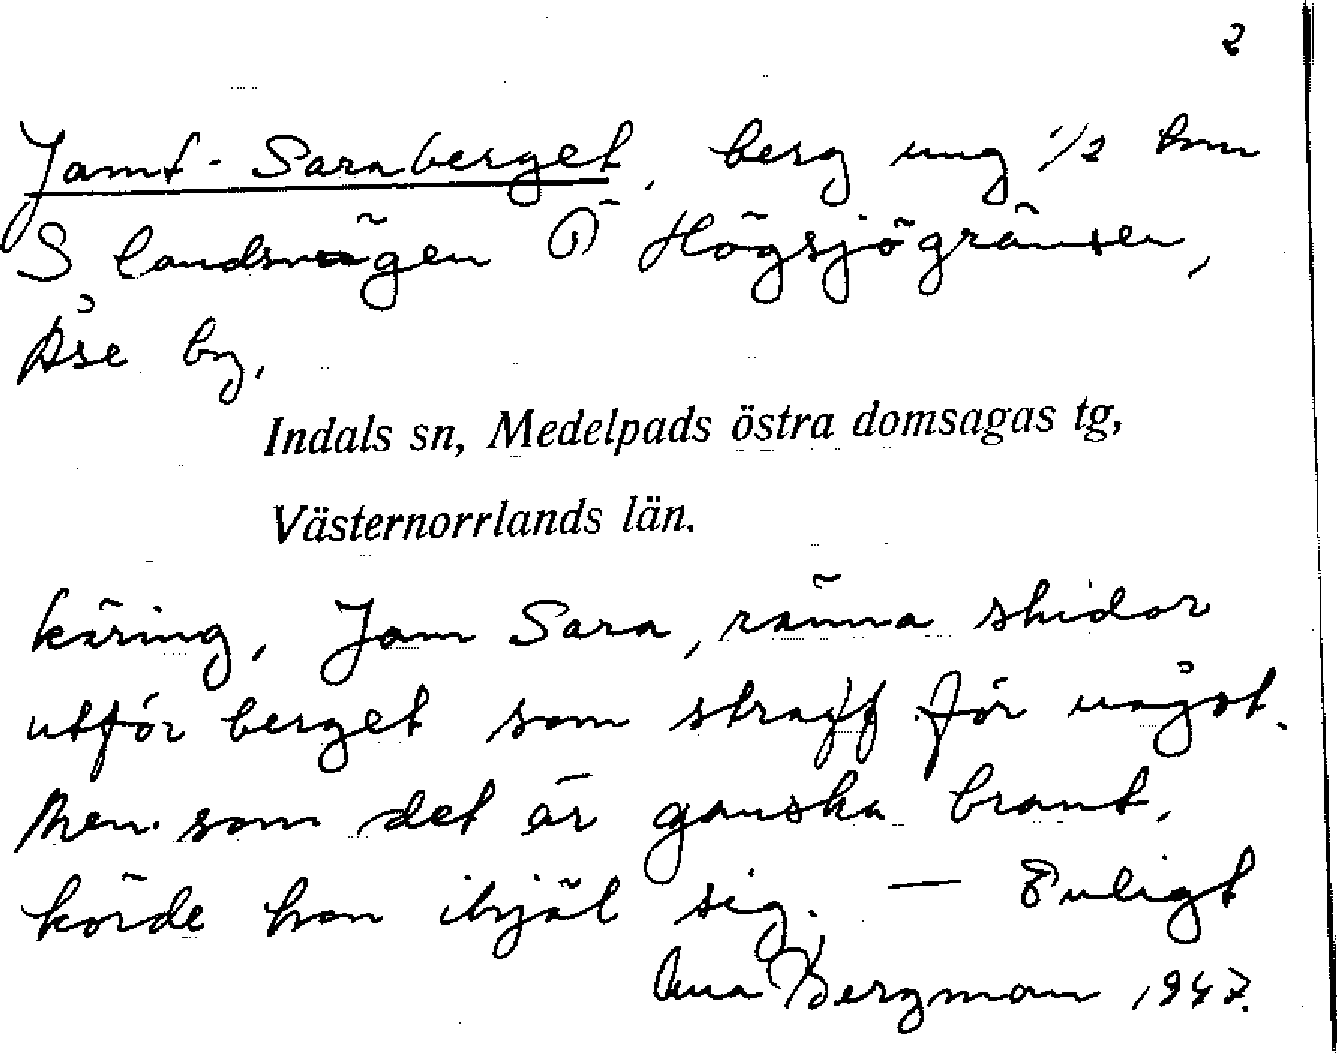 2
Jamt-Saraberget, berg ung 1/2 km
S landsvägen Ö Högsjögränsen,
Åse by,
Indals sn, Medelpads östra domsagas tg,
Västernorrlands län.
käring, Jam Sara, ränna skidor
utför berget som straff för något.
Men som det är ganska brant,
körde hon ihjäl sig. — Enligt
Anna Bergman 1947.